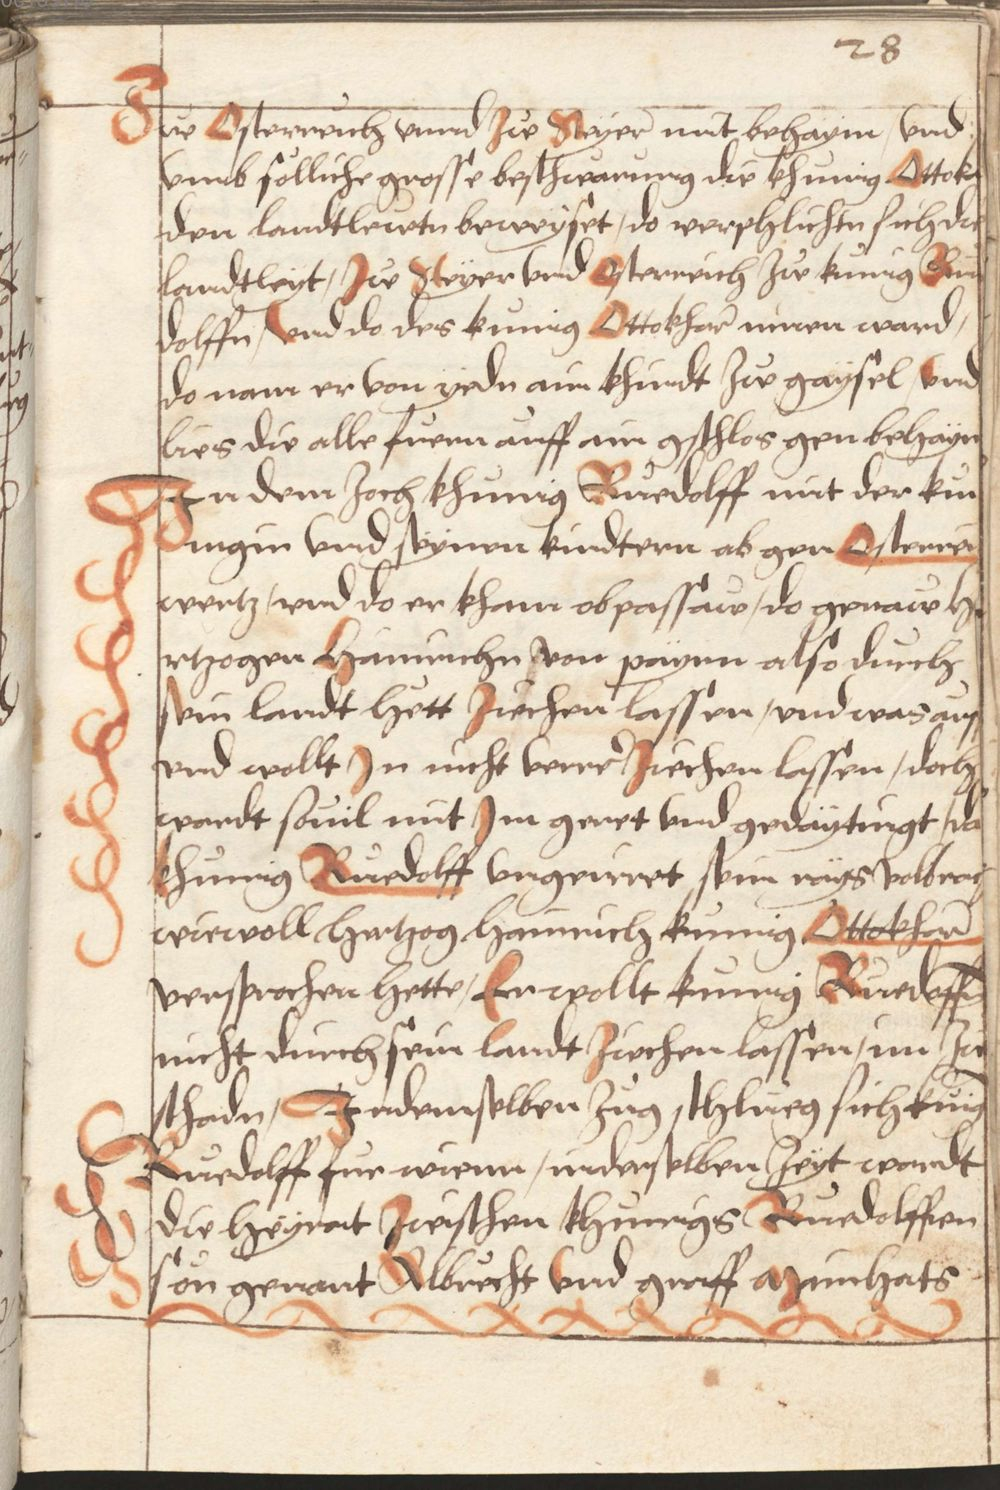 28
Zw Osterreich vnnd Zw Steyer mit behaym / vnd
vmb sölliche grosse beschwarung die khunig Ottokh
den landtlewtn beweyset / do verphlichtn sich die
landtleyt / Zw Steyer vnd Osterreich Zw kunig Rue
dolffn / Vnd do des kunig Ottokhar innen ward /
do nam er von yedn ain khindt Zw gaysel / vnd
lies die alle fuern auff ain gschlos gen behaym
In dem Zoch khunig Ruedolff mit der kun
nigin vnd seynen kindtern ab gen Osterreich
wertz / vnd do er kham ob passaw / do genaw he
rtzogen Hainrichn von payrn also durch
sein landt hett Ziechen lassen / vnd was auff
vnd wollt In nicht verrer Ziechen lassen / doch
wardt souil mit Im geret vnd gedaytingt / das
khunig Ruedolff vngeirret sein rays volbracht
wiewoll hertzog Hainrich kunig Ottokhar
versprochen hette / Er wollt kunig Ruedolffn
nicht durch sein landt Ziechen lassen / im Zw
schadn / In demselben Zug schlueg sich kunig
Ruedolff fur wienn / in derselben Zeyt wardt
die heyrat Zwischen khunigs Ruedolffen
son genant Albrecht vnd graff Mainhats